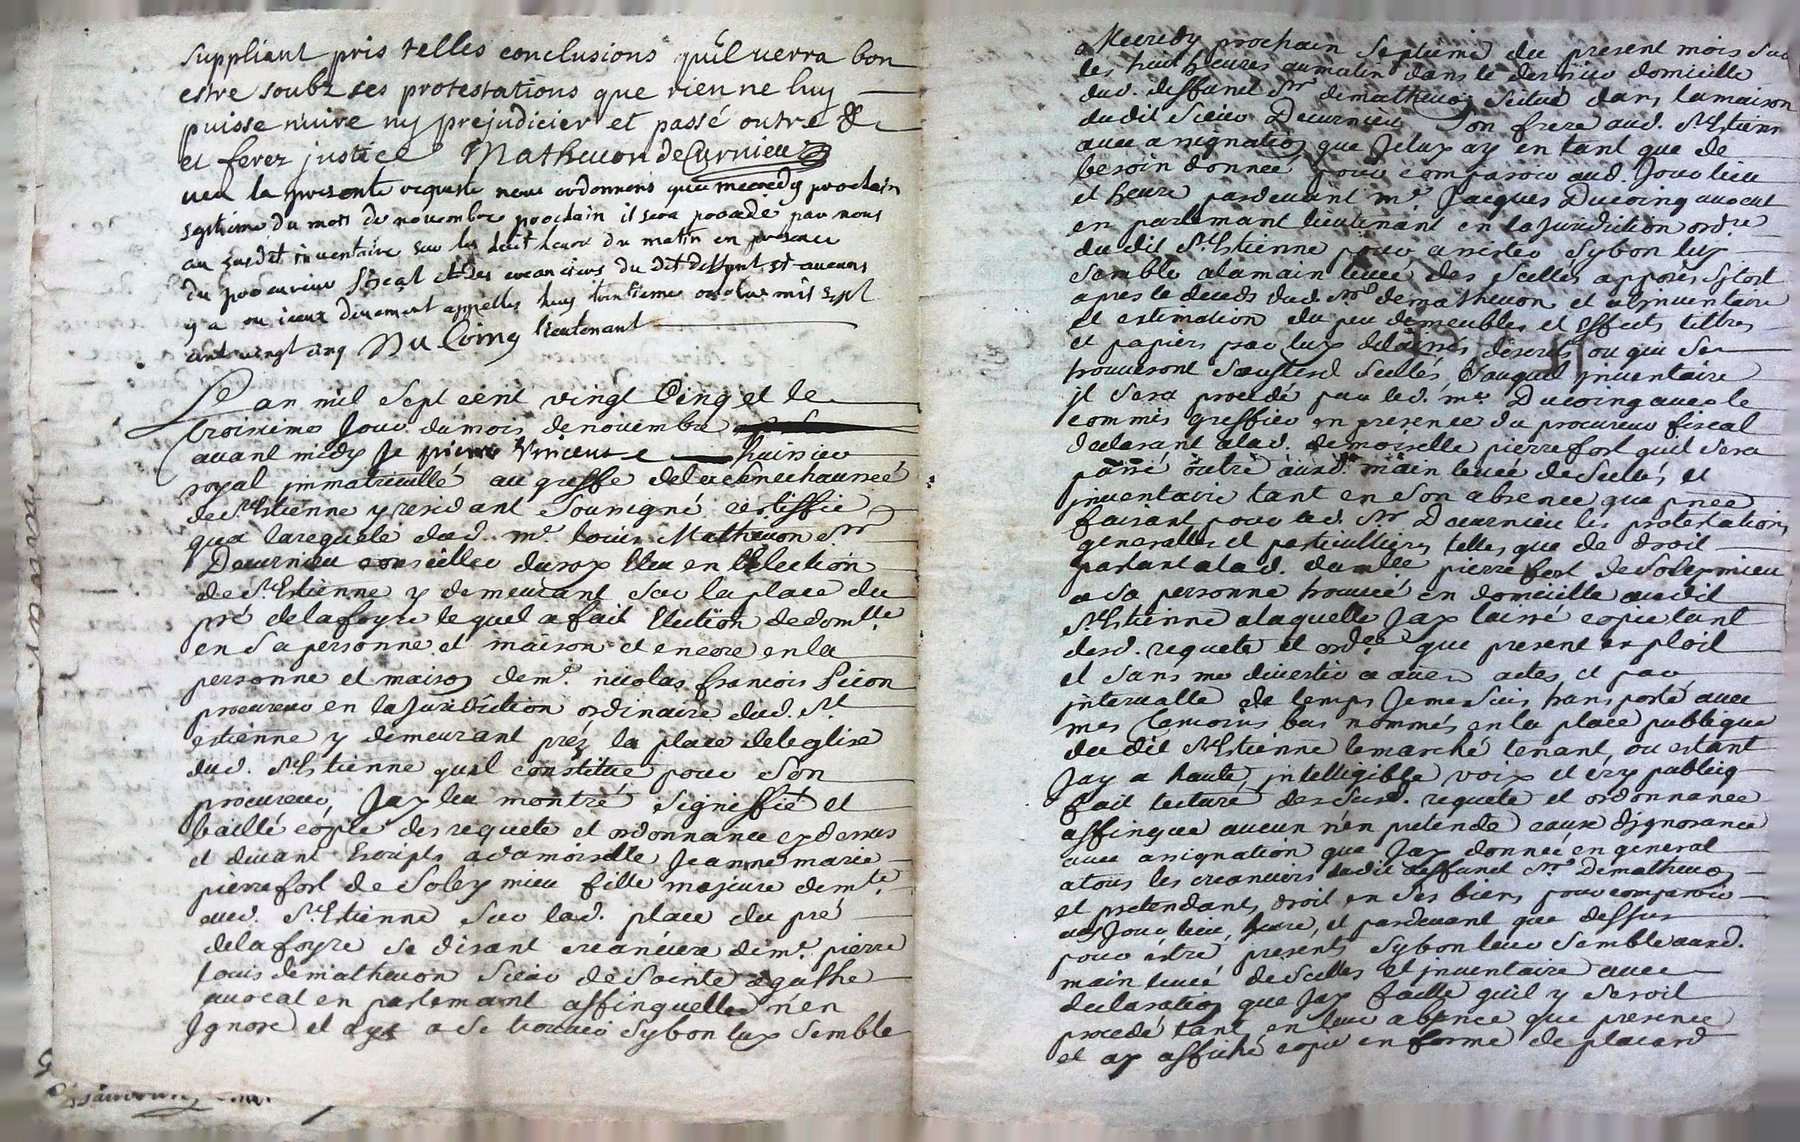 suppliant pris telles conclusions qu'il verra bon
estre soubz ses protestations que rien ne luy
puisse nuire ny prejudicier et passé outre &
et ferez justice Mathevon de Curnieu
veu la presente requeste nous ordonnons que mecredy prochain
septieme du mois de novembre prochain il sera procedé par nous
au susdit inventaire sur les huit heures du matin en presence
du procureur fiscal et des creanciers du dit deffunt si aucuns
y a ou iceux duement appelles ce trentieme octobre mil sept
cent vingt cinq Du Coing lieutenant
L'an mil sept cent vingt Cinq et le
troisieme Jour du mois de novembre
avant midy Je pierre Vincent huissier
royal immatriculé au greffe de la senechaussée
de St Estienne y residant Sousigné certiffie
qu'a la requete dud. me louis Mathevon Sr
Decurnieu conseiller du roy Eleu en l'Election
de St Estienne y demeurant sur la place du
pré de la foyre lequel a fait Election de domlle
en sa personne et maison et encore en la
personne et maison de me nicolas francois Picon
procureur en la Juridiction ordinaire dud. St
estienne y demeurant prez la place de leglise
dud. St Estienne quil constitue pour son
procureur, Jay leu montré signiffié et
baillé copie des requete et ordonnance cy dessus
et devant Escripts a damoiselle Jeanne marie
pierrefort de Soleymieu fille majeure demte
aud. St Estienne sur lad. place du pré
de la foyre se disant creanciere de me pierre
louis de mathevon Sieur de Sainte agathe
avocat en parlemant affinquelle n'en
Ignore et aye a se trouver sy bon luy semble
a Mecredy prochain Septieme du present mois sur
les huit heures au matin dans le dernier domicille
dud. deffunct Sr de mathevon scitué dans la maison
dudit Sieur Decurnieu son frere aud. St Estienne
avec assignation que Je luy ay en tant que de
besoin donnée pour comparoir aud. Jour lieu
et heure pardevant me Jacques Ducoing avocat
en parlemant lieutenant en la Juridiction ordre
du dit St Estienne pour assister sy bon luy
semble a la main levée des scellés apposés sitost
apres le deceds dud. Sr de mathevon et a l'inventaire
et estimation du peu de meubles et Effects tittres
et papiers par luy delaissés descrits ou qui se
trouveront soubs lesd. scellés, auquel inventaire
il sera procedé par led. me Ducoing avec le
commis greffier en presence du procureur fiscal
declarant a lad. demoiselle pierrefort quil sera
passé outre ausd. main levée de scellés, et
inventaire tant en son absence que pnce
faisant pour led. Sr Decurnieu les protestations
generalles et particullieres telles que de droit
parlant a lad. damlle pierrefort de Soleymieu
a sa personne trouvée en domicille audit
St Estienne a laquelle Jay laissé copie tant
desd. requete et ordce que present exploit
et sans me divertir a autres actes, et par
intervalle de temps Je me suis transporté avec
mes temoins bas nommés en la place publique
du dit St Estienne le marché tenant, ou estant
Jay a haute, intelligible voix et cry publicq
fait lecture des susd. requete et ordonnance
affinque aucun n'en pretende cause d'ignorance
avec assignation que Jay donnée en general
a tous les creanciers dudit deffunct Sr Demathevon
et pretendants droit en ses biens pour comparoir
aud Jour lieu, heure, et pardevant que dessus
pour estre presents sy bon leur semble aud.
main levée de scellés et inventaire avec
declaration que Jay faitte quil y seroit
procedé tant en leur absence que presence
et ay affiché copie en forme de placard